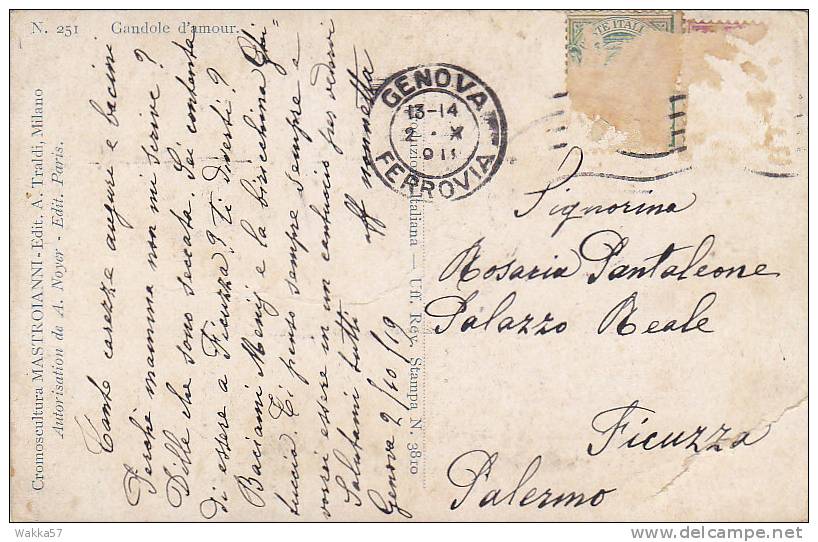 N. 251 Gandole d'amour.
Cromoscultura MASTROIANNI - Edit. A. Traldi, Milano
Autorisation de A. Noyer - Edit. Paris.
Tante carezze auguri e bacini
Perchè mamma non mi scrive?
Dille che sono seccata. Sei contenta
di essere a Ficuzza? ti diverti?
Baciami Menij e la
tuccia. Ti penso sempre sempre e
vorrei essere in un cantuccio per vedervi
Salutami tutti
aff
Genova 2/10/19
Italiana — Uff. Rev. Stampa N. 3810
GENOVA
13-14
2 · X
911
FERROVIA
Signorina
Rosaria Pantaleone
Palazzo Reale
Ficuzza
Palermo
Wakka57
delcampe.net